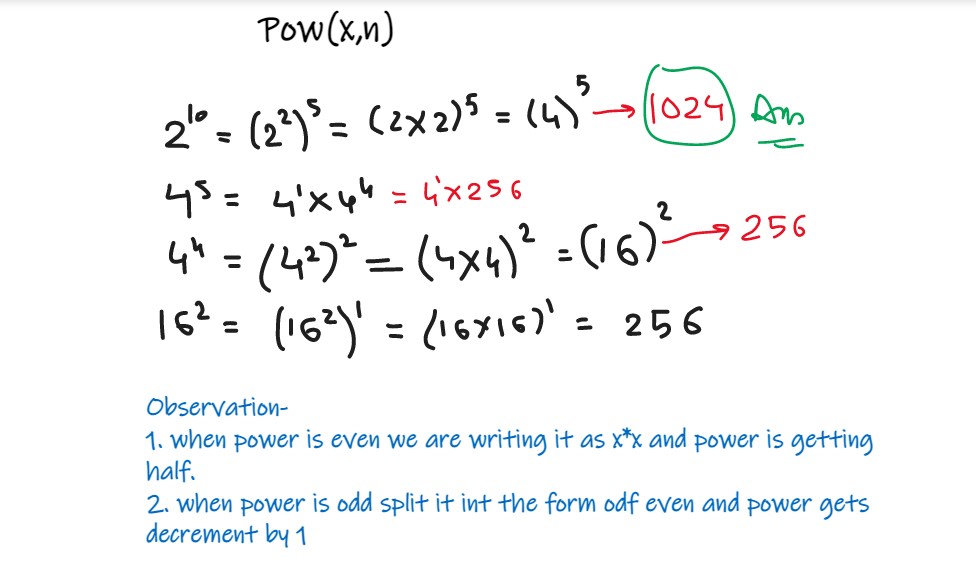 Pow(x,n)
2¹⁰ = (2²)⁵ = (2×2)⁵ = (4)⁵ → 1024 Ans
4⁵ = 4¹×4⁴ = 4¹×256
4⁴ = (4²)² = (4×4)² = (16)² → 256
16² = (16²)¹ = (16×16)¹ = 256
Observation-
1. when power is even we are writing it as x*x and power is getting
half.
2. when power is odd split it int the form odf even and power gets
decrement by 1